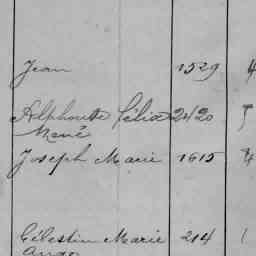 Jean 1529 4
Alphonse Célia 2420
René
Joseph Marie 1615 4
Célestin Marie 214 1
Ange